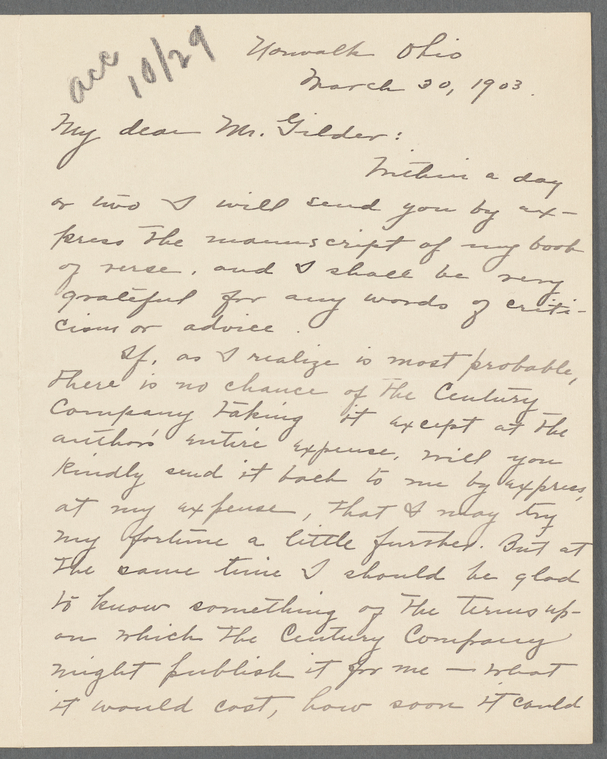 acc
10/29
Norwalk Ohio
March 30, 1903.
My dear Mr. Gilder:
Within a day
or two I will send you by ex-
press the manuscript of my book
of verse, and I shall be very
grateful for any words of criti-
cism or advice.
If, as I realize is most probable,
there is no chance of the Century
Company taking it except at the
author's entire expense, will you
kindly send it back to me by express,
at my expense, that I may try
my fortune a little further. But at
the same time I should be glad
to know something of the terms up-
on which the Century Company
might publish it for me — what
it would cost, how soon it could